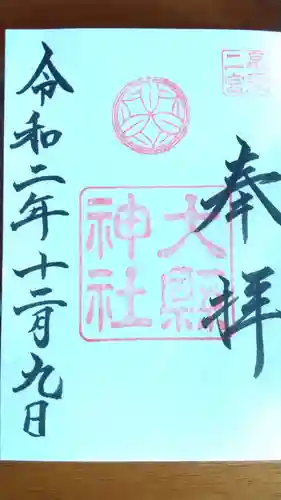 奉拝
尾張
二宮
大縣
神社
令和二年十二月九日